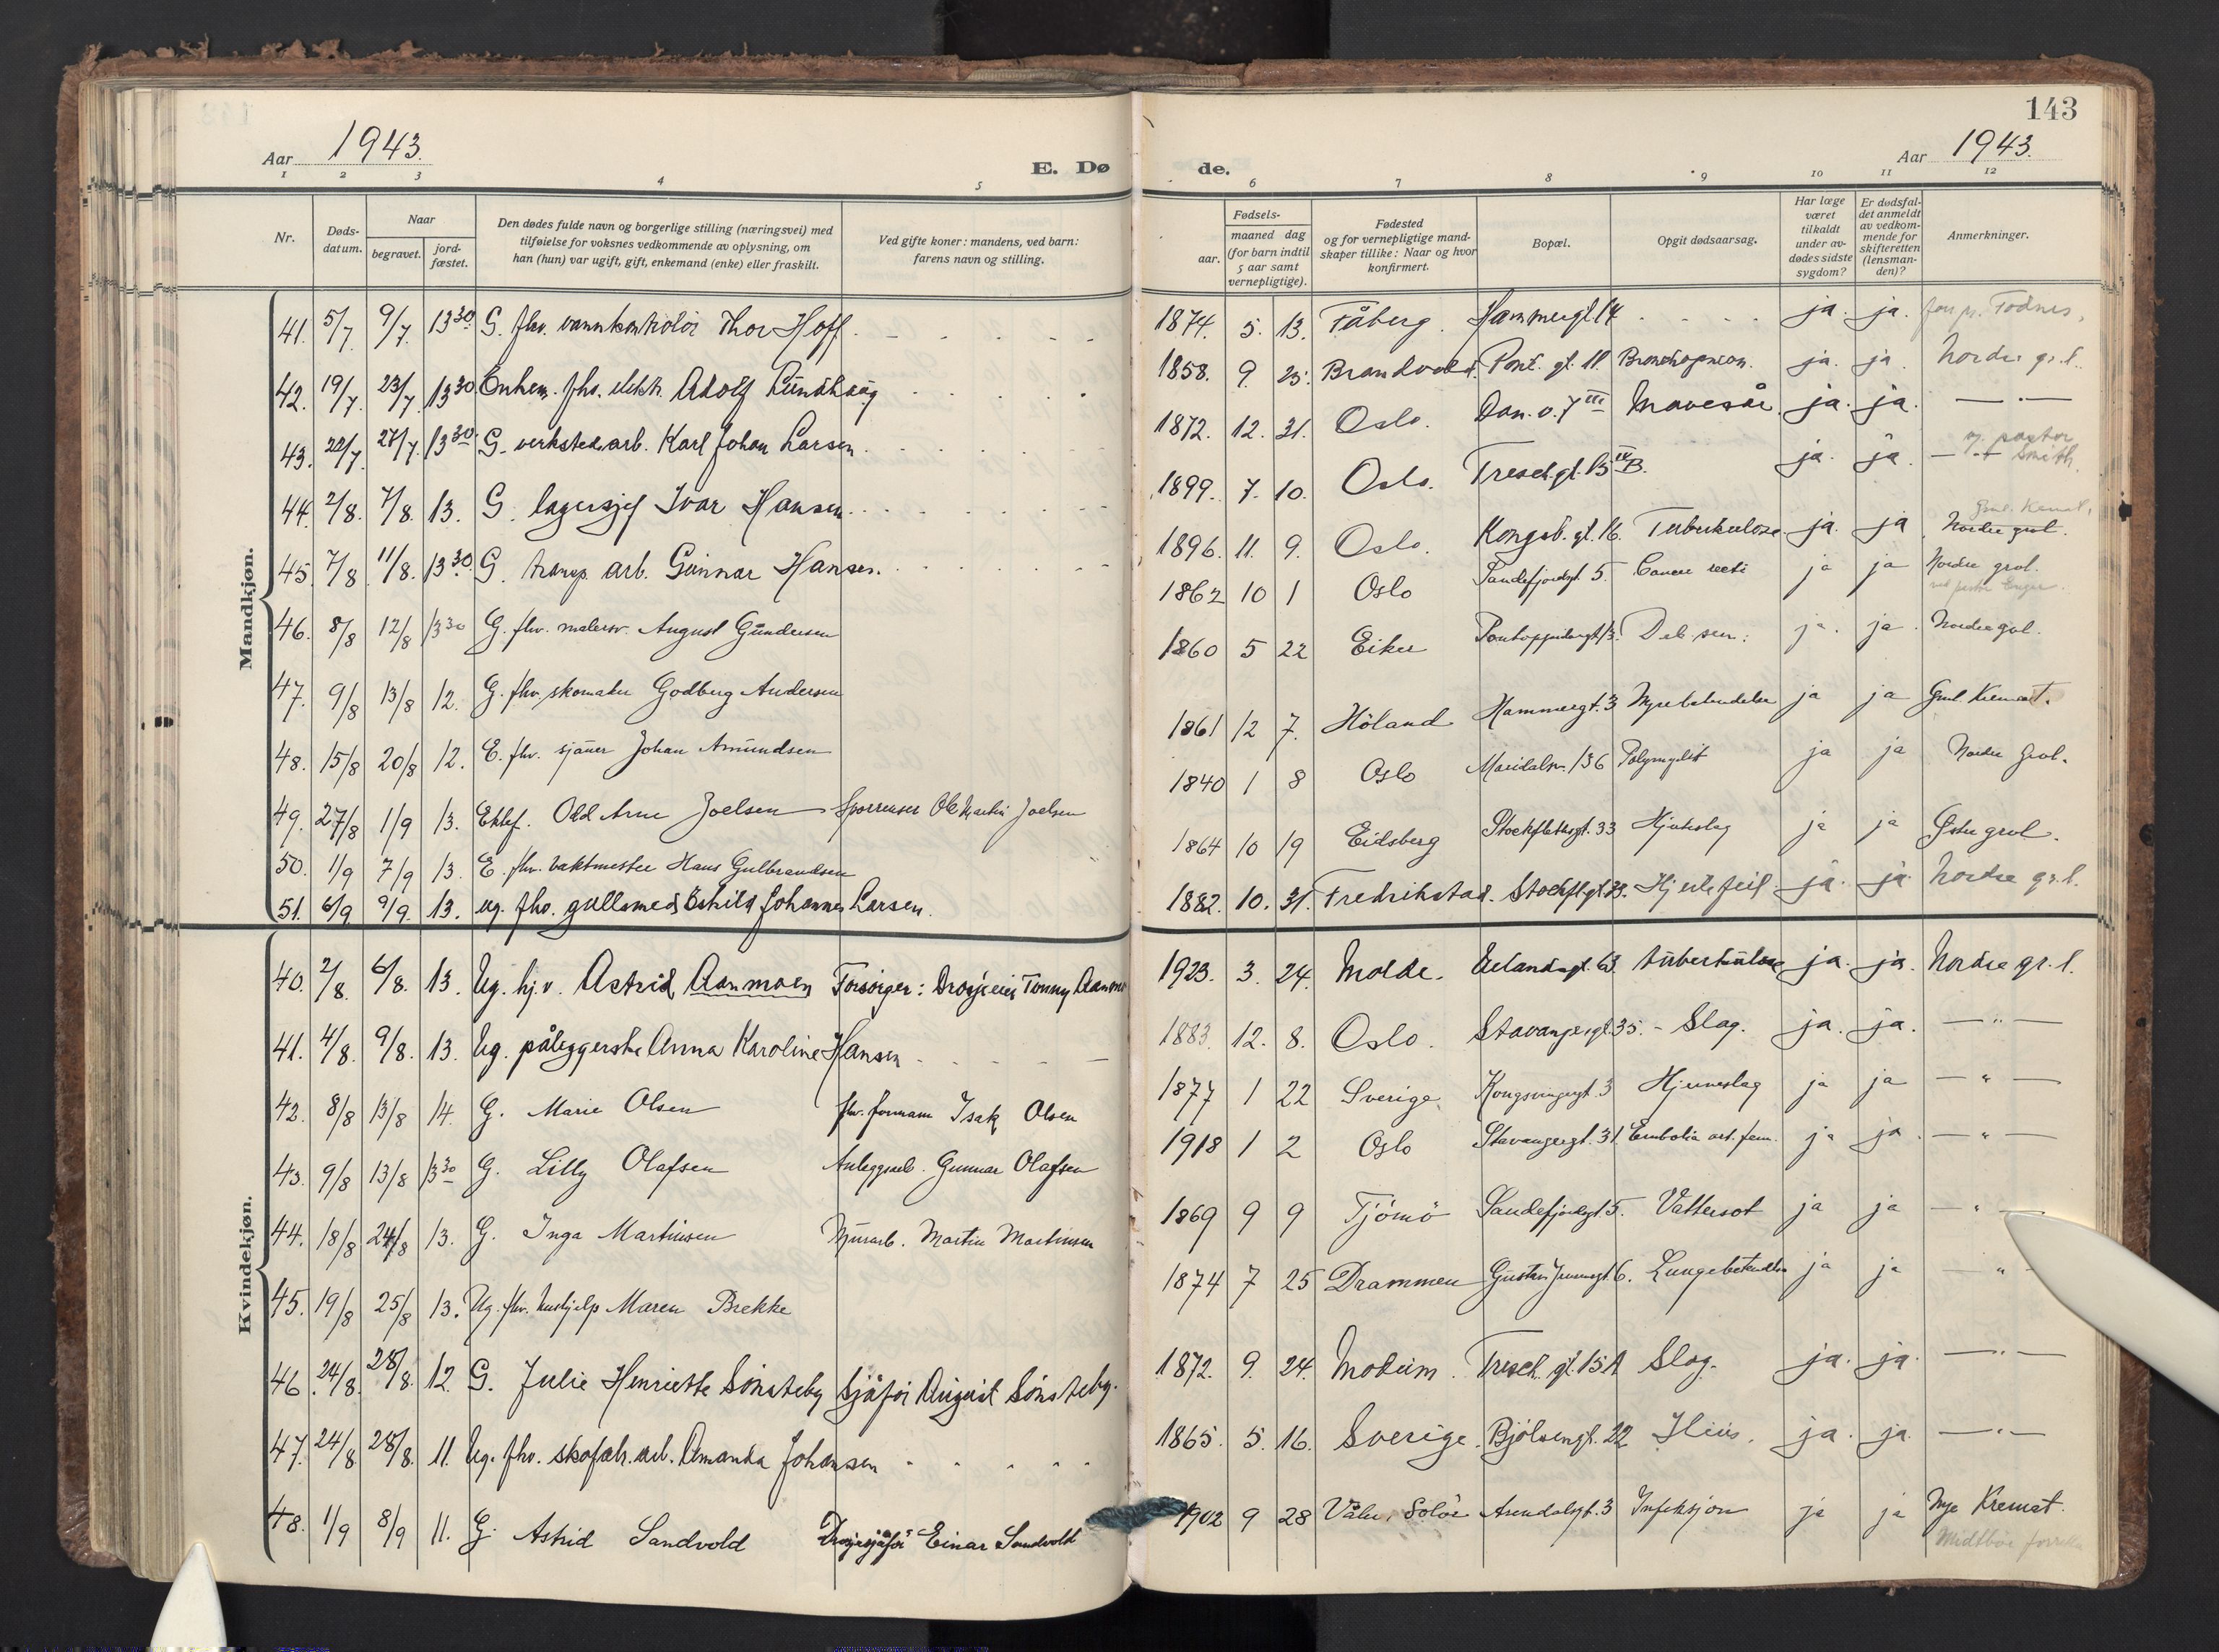 143
Aar 1943. E. Dø
de. Aar 1943.
1 2 3 4 5
6 7 8 9 10 11 12
Nr. Døds-datum. Naar begravet. jord-fæstet. Den dødes fulde navn og borgerlige stilling (næringsvei) med tilføielse for voksnes vedkommende av oplysning, om han (hun) var ugift, gift, enkemand (enke) eller fraskilt. Ved gifte koner: mandens, ved barn: farens navn og stilling.
Fødsels- aar. maaned dag (for barn indtil 5 aar samt vernepligtige). Fødested og for vernepligtige mand-skaper tillike: Naar og hvor konfirmert. Bopæl. Opgit dødsaarsag. Har læge været tilkaldt under av-dødes sidste sygdom? Er dødsfal-det anmeldt av vedkom-mende for skifteretten (lensman-den)? Anmerkninger.
Mandkjøn.
41. 5/7 9/7. 13 30 G. fhv. vannkontrolör Thor Hoff.
42. 19/7 23/7 13 30 Enkem. fhv. elektr. Adolf Lundhaug
43. 22/7 27/7 13 30 G. verkstedarb. Karl Johan Larsen
44. 2/8. 7/8. 13. G. lagersjef Ivar Hansen
45. 7/8 11/8. 13 30 G. transp. arb. Gunnar Hansen.
46. 8/8 12/8 13 30 G. fhv. malersv. August Gundersen
47. 9/8 13/8 12. G. fhv. skomaker Godberg Andersen
48. 15/8 20/8 12. E. fhv. sjauer Johan Amundsen
49. 27/8 1/9 13. Ektef. Odd Arne Joelsen Sporreuser Ole Martin Joelsen
50. 1/9 7/9 13. E. fhv. vaktmester Hans Gulbrandsen
51. 6/9 9/9. 13. ug. fhv. gullsmed Eskild Johannes Larsen.
Kvindekjøn.
40. 2/8. 6/8. 13. Ug. hj.v. Astrid Aanmoen Forsørger: Drosjeeier Tonny Aanmo
41. 4/8. 9/8. 13. Ug. påleggerske Anna Karoline Hansen
42. 8/8 13/8 14. G. Marie Olsen fhv. formann Isak Olsen
43. 9/8 13/8 13 30 G. Lilly Olafsen Anleggsarb. Gunnar Olafsen
44. 18/8 24/8 13. G. Inga Martinsen Murarb. Martin Martinsen
45. 19/8 25/8 13. Ug. fhv. hushjelp Maren Brekke
46. 24/8. 28/8. 12. G. Julie Henriette Sönsteby Sjåför August Sönsteby.
47. 24/8. 28/8. 11. Ug. fhv. skofabr. arb. Amanda Johansen
48. 1/9 8/9 11. G. Astrid Sandvold Drosjesjåfør Einar Sandvold
1874. 5. 13. Fåberg. Hammergt. 14 ja. ja.
1858. 9. 25. Brandvold. Pont. gt. 11. Bronchopneum. ja. ja. Nordre gr.l.
1872. 12. 31. Oslo. Dan. v. 7 III Mavesår. ja. ja. — " —
1899. 7. 10. Oslo. Tresch. gt. 15 IV B. ja. ja. — " — v. pastor Smith.
1896. 11. 9. Oslo. Kongsb. gt. 16. Tuberkulose ja. ja Nordre grvl.
1862 10 1 Oslo Sandefjordgt. 5. Cancer recti ja ja Nordre grvl.
1860 5 22 Eiker Pontoppidansgt. 13. Deb. sen. ja. ja Nordre gvl.
1861 12 7. Höland Hammergt. 3 Nyrebetendelse ja ja Gml. Kremat.
1840 1 8 Oslo Maridalsv. 136 Polymyelit ja ja Nordre grvl.
1864 10 19 Eidsberg Stockflethsgt. 33 Hjerteslag ja ja Østre grvl.
1882. 10. 31. Fredrikstad. Stockfl.gt. 39. Hjertefeil ja. ja. Nordre gr.l.
1923. 3. 24. Molde. Eelandsgt. 63. tuberkulose ja. ja. Nordre gr.l.
1883. 12. 8. Oslo. Stavangergt. 35. - Slag. ja. ja. — " —
1877 1 22 Sverige Kongsvingergt. 3 Hjerneslag ja ja — " —
1918 1 2 Oslo Stavangergt. 31. Embolia art. fem. ja ja — " —
1869 9 9 Tjömö Sandefjordgt. 5. Vattersot ja ja — " —
1874 7 25 Drammen Gustav Jensensgt. 6. Lungebetendelse ja ja — " —
1872. 9. 24. Modum. Tresch. gt. 15A Slag. ja. ja. — " —
1865. 5. 16. Sverige. Bjölsengt. 22 Ileus. ja. ja. — " —
1902 9 28 Våler, Solör Arendalsgt. 3 Infeksjon ja ja Nye Kremat.